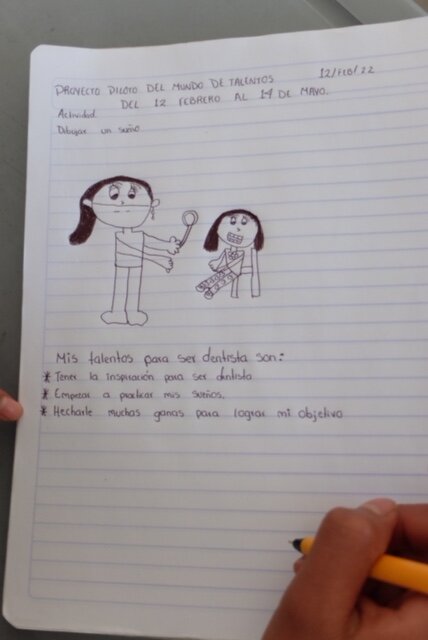 12/FEB/22
PROYECTO PILOTO DEL MUNDO DE TALENTOS
DEL 12 FEBRERO AL 14 DE MAYO.
Actividad.
Dibujar un sueño
Mis talentos para ser dentista son:
* Tener la inspiración para ser dentista
* Empezar a practicar mis sueños.
* Hecharle muchas ganas para lograr mi objetivo